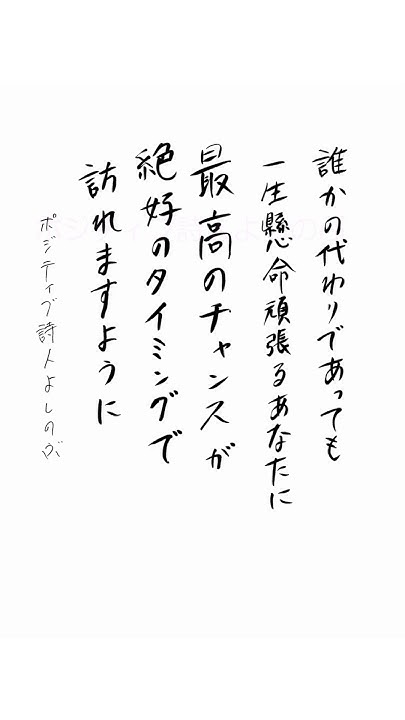 誰かの代わりであっても
一生懸命頑張るあなたに
最高のチャンスが
絶好のタイミングで
訪れますように
ポジティブ詩人よしのぶ